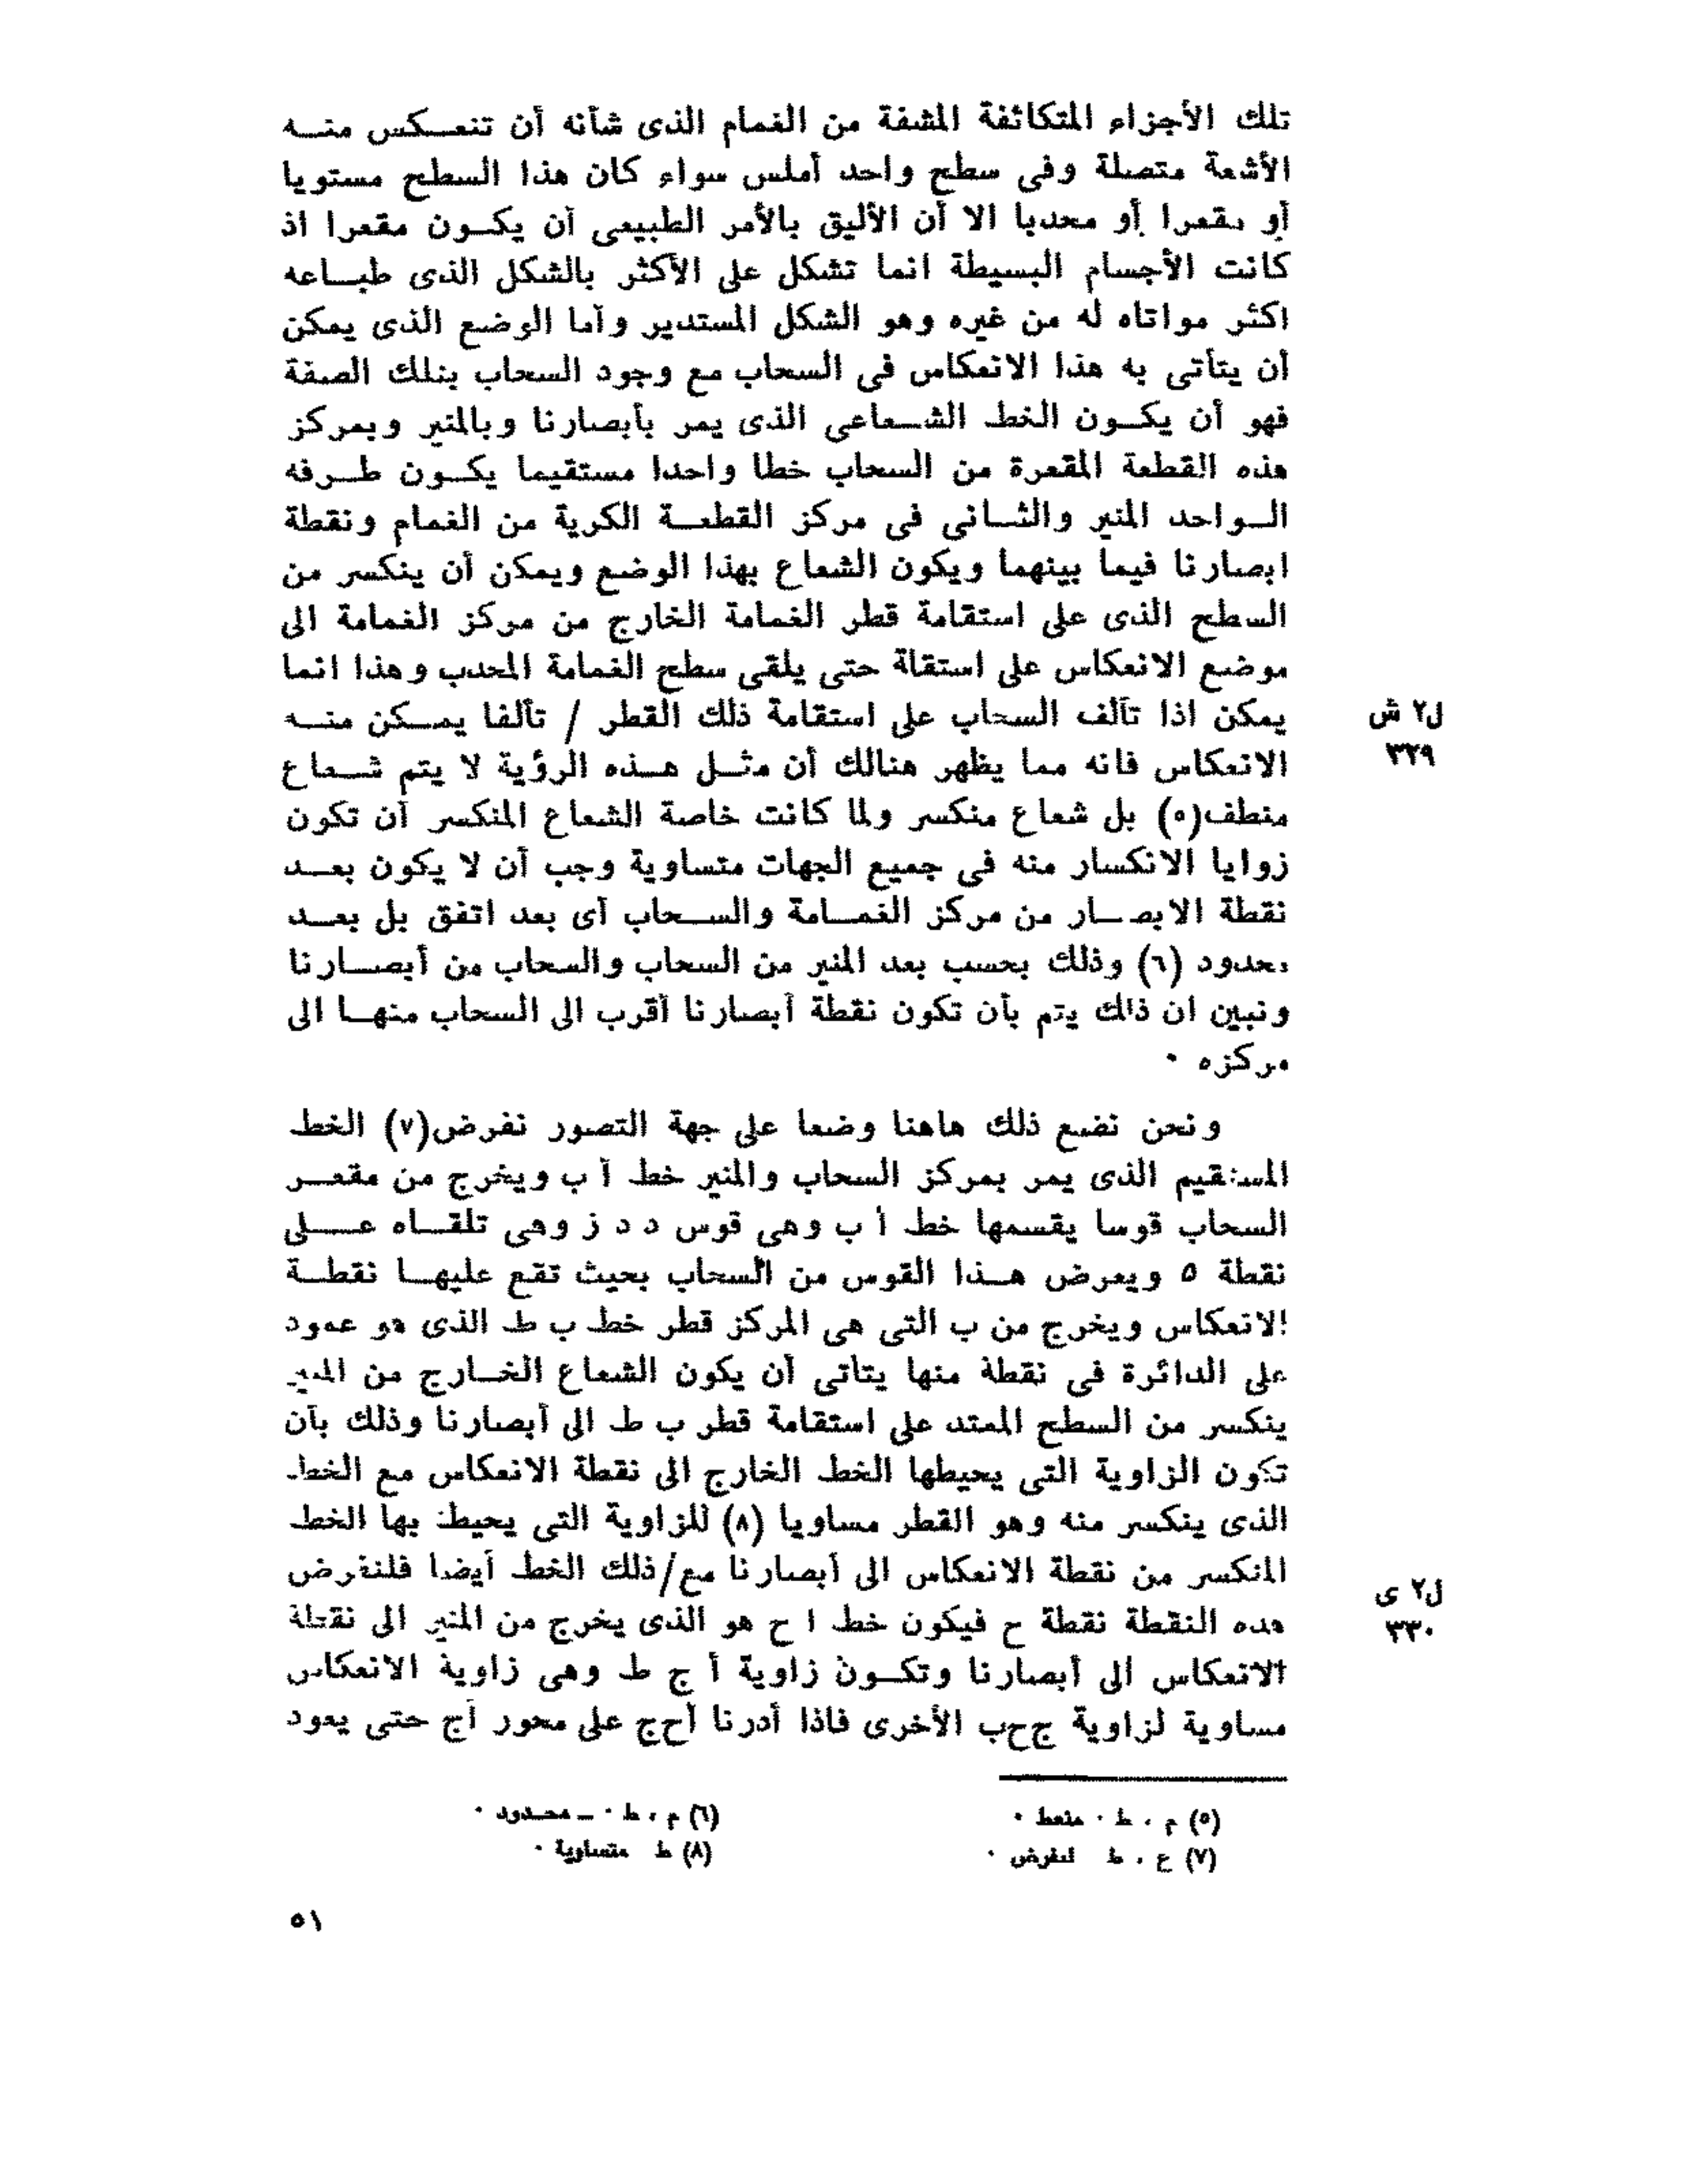 تلك الأجزاء المتكاثفة المشفة من الغمام الذى شأنه أن تنعكس منه
الأشعة متصلة وفى سطح واحد أملس سواء كان هذا السطح مستويا
أو مقعرا أو محدبا الا أن الأليق بالأمر الطبيعى أن يكون مقعرا اذ
كانت الأجسام البسيطة انما تشكل على الأكثر بالشكل الذى طباعه
اكثر مواتاه له من غيره وهو الشكل المستدير وأما الوضع الذى يمكن
أن يتأتى به هذا الانعكاس فى السحاب مع وجود السحاب بتلك الصفة
فهو أن يكون الخط الشعاعى الذى يمر بأبصارنا وبالمنير وبمركز
هذه القطعة المقعرة من السحاب خطا واحدا مستقيما يكون طرفه
الواحد المنير والثانى فى مركز القطعة الكرية من الغمام ونقطة
ابصارنا فيما بينهما ويكون الشعاع بهذا الوضع ويمكن أن ينكسر من
السطح الذى على استقامة قطر الغمامة الخارج من مركز الغمامة الى
موضع الانعكاس على استقالة حتى يلقى سطح الغمامة المحدب وهذا انما
يمكن اذا تألف السحاب على استقامة ذلك القطر / تألفا يمكن منه
ل٢ ش
٣٢٩
الانعكاس فانه مما يظهر هنالك أن مثل هذه الرؤية لا يتم شعاع
منطف(٥) بل شعاع منكسر ولما كانت خاصة الشعاع المنكسر أن تكون
زوايا الانكسار منه فى جميع الجهات متساوية وجب أن لا يكون بعد
نقطة الابصار من مركز الغمامة والسحاب أى بعد اتفق بل بعد
محدود (٦) وذلك بحسب بعد المنير من السحاب والسحاب من أبصارنا
ونبين ان ذلك يتم بأن تكون نقطة أبصارنا أقرب الى السحاب منها الى
مركزه ٠
ونحن نضع ذلك هاهنا وضعا على جهة التصور نفرض(٧) الخط
المستقيم الذى يمر بمركز السحاب والمنير خط أ ب ويخرج من مقعر
السحاب قوسا يقسمها خط أ ب وهى قوس د د ز وهى تلقاه على
نقطة ٥ ويعرض هذا القوس من السحاب بحيث تقع عليها نقطة
الانعكاس ويخرج من ب التى هى المركز قطر خط ب ط الذى هو عمود
على الدائرة فى نقطة منها يتاتى أن يكون الشعاع الخارج من المنير
ينكسر من السطح الممتد على استقامة قطر ب ط الى أبصارنا وذلك بأن
تكون الزاوية التى يحيطها الخط الخارج الى نقطة الانعكاس مع الخط
الذى ينكسر منه وهو القطر مساويا (٨) للزاوية التى يحيط بها الخط
المنكسر من نقطة الانعكاس الى أبصارنا مع/ذلك الخط أيضا فلنفرض
ل٢ ى
٣٣٠
هده النقطة نقطة ح فيكون خط ا ح هو الذى يخرج من المنير الى نقطة
الانعكاس الى أبصارنا وتكون زاوية أ ج ط وهى زاوية الانعكاس
مساوية لزاوية ججب الأخرى فاذا أدرنا أحج على محور أج حتى يعود
(٥) م ، ط ٠ منعط ٠
(٦) م ، ط ٠ ـ محدود ٠
(٧) ع ، ط لنفرض ٠
(٨) ط متساوية ٠
٥١